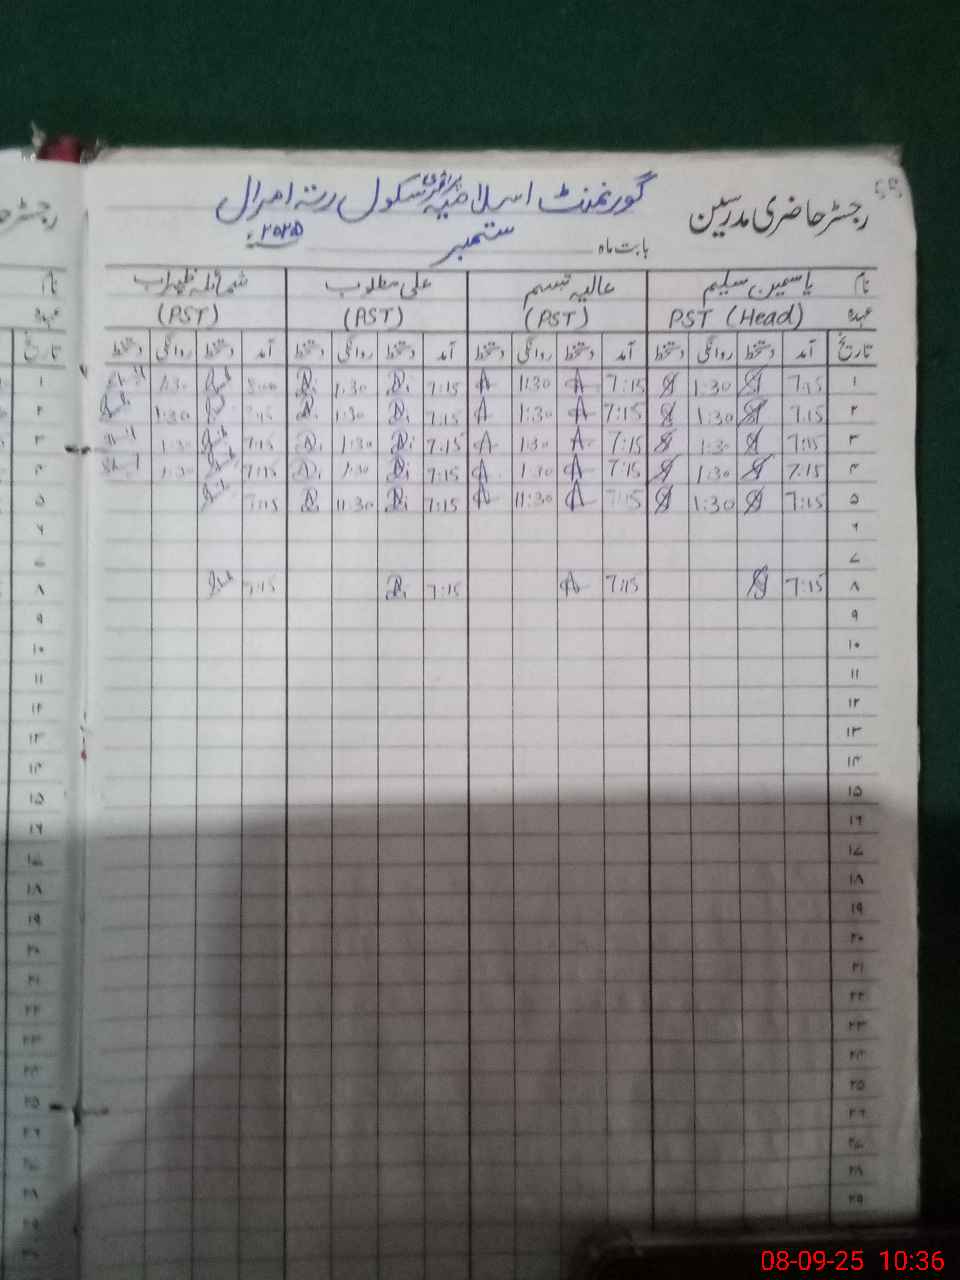 رجسٹر حاضری مدرسین
گورنمنٹ اسلامیہ پرائمری سکول رتہ امرال
بابت ماہ ستمبر ۲۰۲۵ء
نام یاسمین سلیم عالیہ تبسم علی مطلوب شمائلہ ظہراب
عہدہ PST (Head) (PST) (PST) (PST)
تاریخ آمد دستخط روانگی دستخط آمد دستخط روانگی دستخط آمد دستخط روانگی دستخط آمد دستخط روانگی دستخط
۱ 7:15 1:30 7:15 1:30 7:15 1:30 8:00 1:30
۲ 7:15 1:30 7:15 1:30 7:15 1:30 7:15 1:30
۳ 7:15 1:30 7:15 1:30 7:15 1:30 7:15 1:30
۴ 7:15 1:30 7:15 1:30 7:15 1:30 7:15 1:30
۵ 7:15 1:30 7:15 11:30 7:15 11:30 7:15
۶
۷
۸ 7:15 7:15 7:15 7:15
۹
۱۰
۱۱
۱۲
۱۳
۱۴
۱۵
۱۶
۱۷
۱۸
۱۹
۲۰
۲۱
۲۲
۲۳
۲۴
۲۵
۲۶
۲۷
۲۸
۲۹
08-09-25 10:36